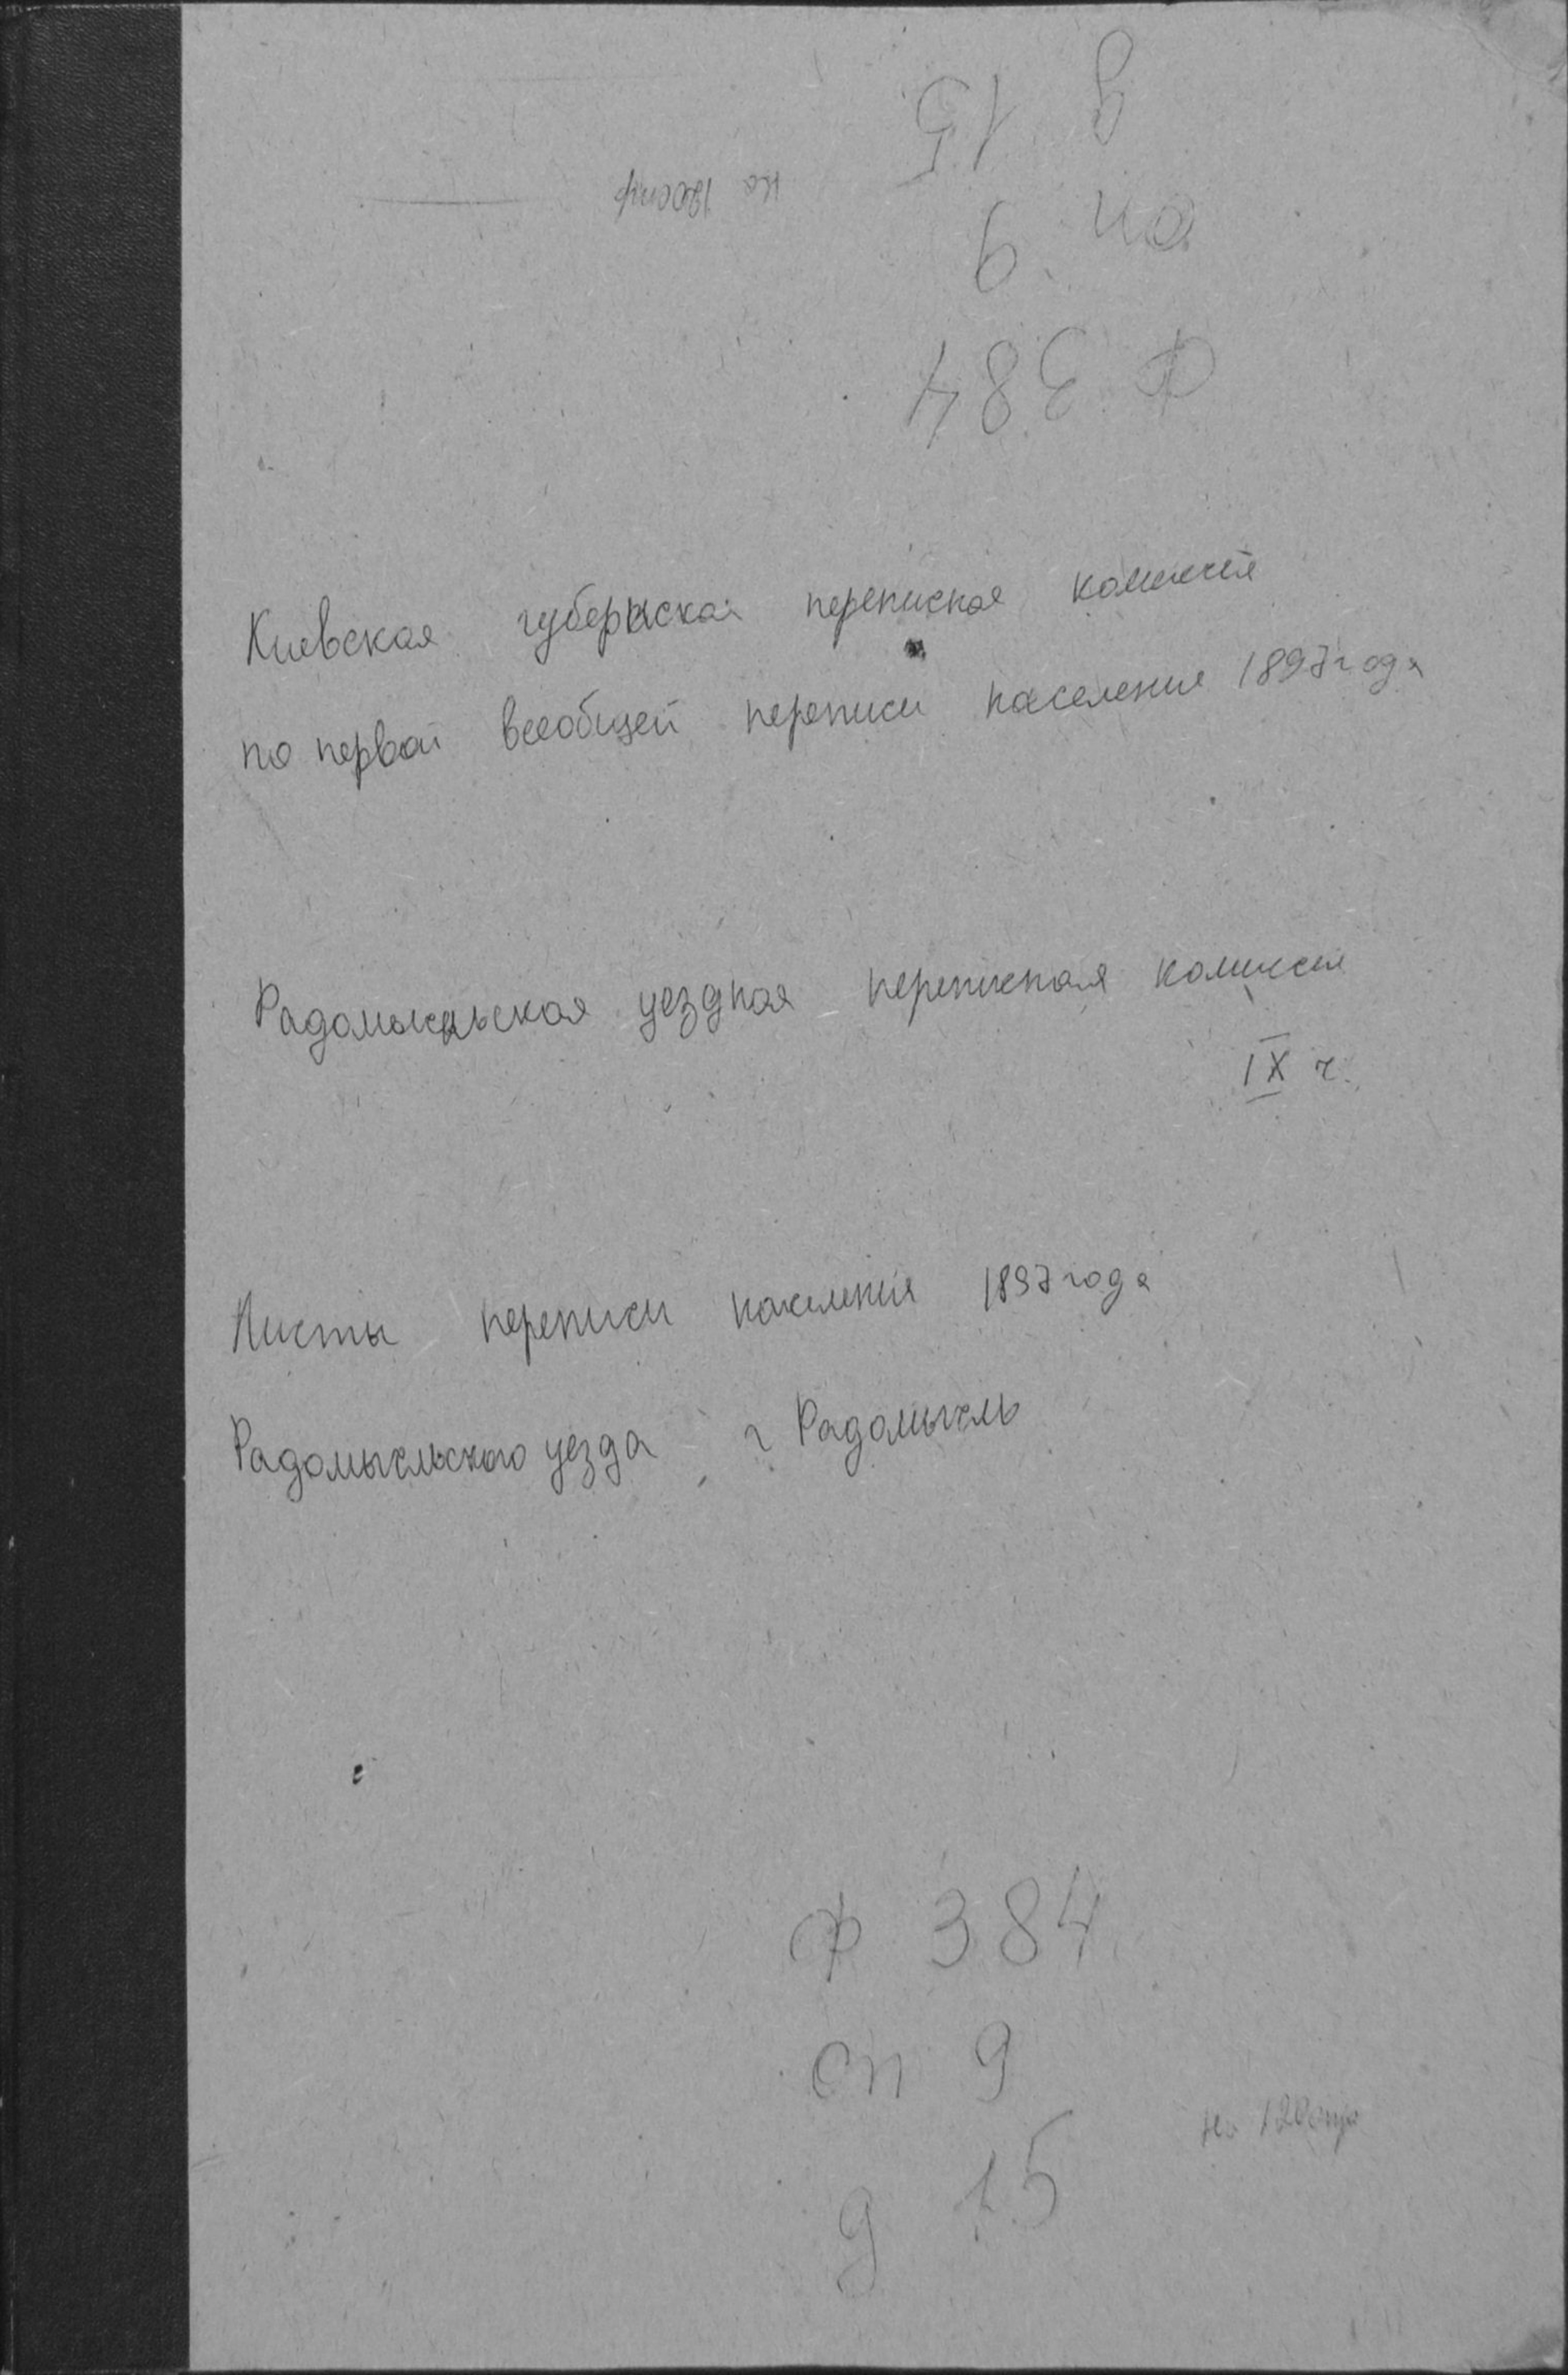 д 15
на 120стр
оп 9
ф 384
Киевская губернская переписная комиссия
по первой всеобщей переписи населения 1897 года
Радомысльская уездная переписная комиссия
IX ч.
Листы переписи населения 1897 года
Радомысльского уезда г Радомысль
ф 384
оп 9
на 120стр
д 15